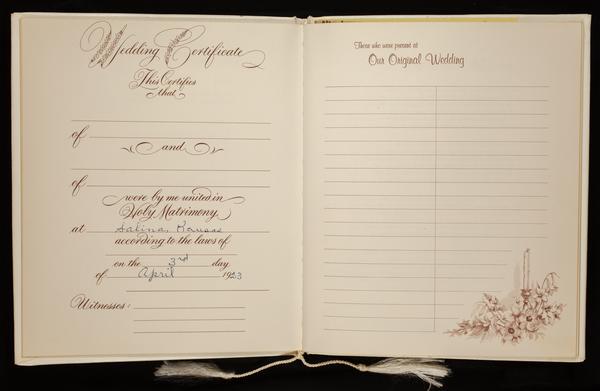 Wedding Certificate
This Certifies
that
of
and
of
were by me united in
Holy Matrimony
at Salina, Kansas
according to the laws of
on the 3rd day
of April 1923
Witnesses:
Those who were present at
Our Original Wedding